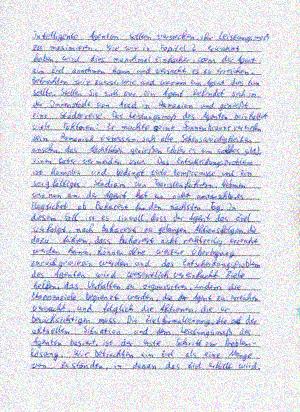 Intelligente Agenten sollen versuchen, ihr Leistungsmaß
zu maximieren. Wie wir in Kapitel 2 erwähnt
haben wird dies manchmal einfacher wenn der Agent
ein Ziel annehmen kann und versucht es zu erreichen.
Betrachten zuerst wie und warum ein Agent dies tun
sollte. Stellen Sie sich vor ein Agent befindet sich in
der Innenstadt von Arad in Rumänien und genießt
eine Städtereise. Das Leistungsmaß des Agenten beinhaltet
viele Faktoren: Er möchte seine Sonnenbräune
Rumänisch verbessern, sich alle Sehenswürdigkeiten
ansehen das Nachtleben genießen
einen Kater vermeiden usw. Das Entscheidungsproblem
ist komplex und bedingt viele Kompromisse und ein
sorgfältiges Studium von Reiseführern. Nehmen
wir nun an der Agent hat ein nicht
Flugticket ab Bukarest für den nächsten Tag. In
diesem Fall ist es sinnvoll, dass der Agent das Ziel
verfolgt, nach Bukarest zu gelangen. Aktionsfolgen die
dazu führen, dass Bukarest nicht rechtzeitig erreicht
werden kann, können ohne weitere Überlegung
zurückgewiesen werden und das Entscheidungsproblem
des Agenten wird wesentlich vereinfacht. Ziele
helfen, das Verhalten zu organisieren, indem die
begrenzt werden, die der Agent zu erreichen
versucht und folglich die Aktionen, die er
berücksichtigen muss. Die Zielformulierung, die auf der
aktuellen Situation und dem Leistungsmaß des
Agenten basiert, ist der erste Schritt zur Problem-
lösung. Wir betrachten ein Ziel als eine Menge
von Zuständen, in denen das Ziel erfüllt wird.